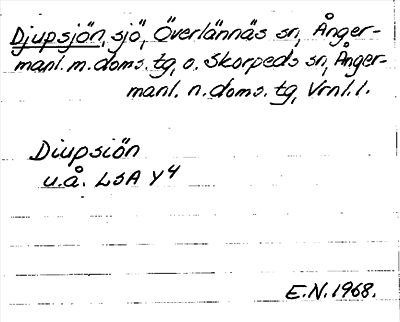 Djupsjön, sjö, Överlännäs sn, Ånger-
manl. m. doms. tg, o. Skorpeds sn, Ånger-
manl. n. doms. tg, Vrnl. l.
Diupsiön
u.å. LSA Y4
E.N. 1968.